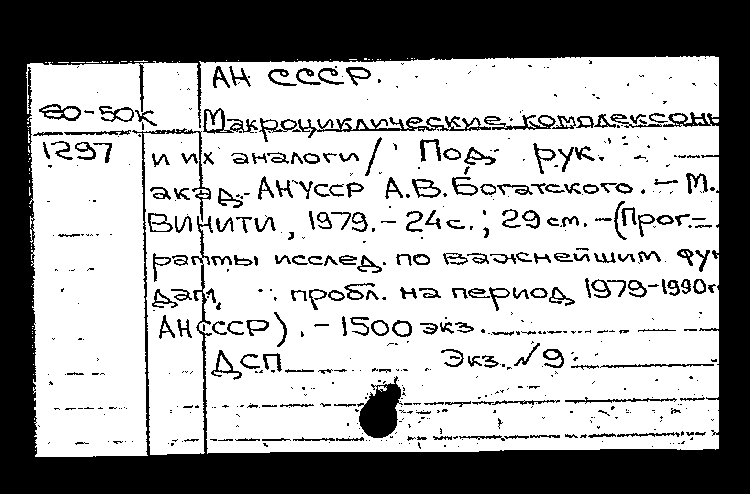 АН СССР.
80-50к Макроциклические комплексоны
1297 и их аналоги / Под рук.
акад. АН УССР А.В. Богатского. - М.
ВИНИТИ, 1979. - 24 с.; 29 см. - (Прог-
раммы исслед. по важнейшим фун
дам. пробл. на период 1979-1990г
АН СССР). - 1500 экз.
ДСП Экз. №9